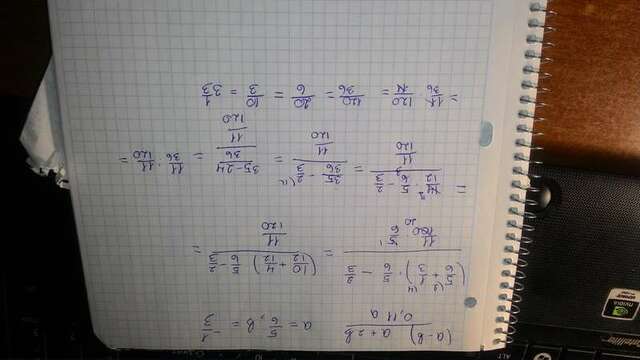 Satellite
ALT
nVIDIA
(a-b) a+2b / 0,11 a   a = 5/6, b = -1/3
((5/6 + 1/3) · 5/6 - 2/3) / (11/100 · 5/6) = ((10/12 + 4/12) 5/6 - 2/3) / (11/120) =
= (14/12 · 5/6 - 2/3) / (11/120) = (35/36 - 2/3) / (11/120) = ((35-24)/36) / (11/120) = 11/36 · 11/120 =
= 11/36 120/11 = 120/36 = 20/6 = 10/3 = 3 1/3